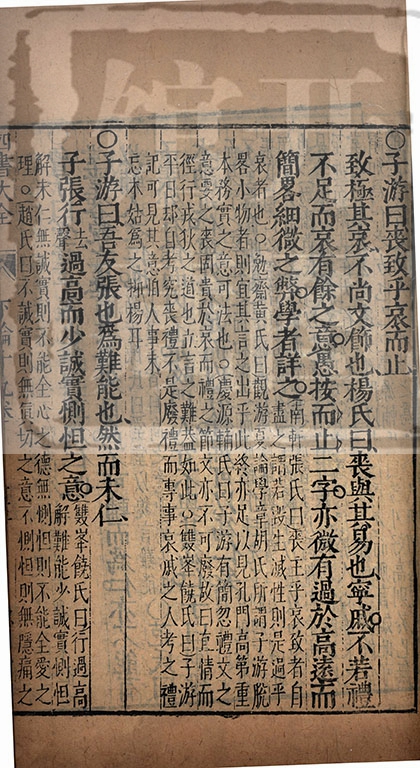 ○子游曰喪致乎哀而止
致極其哀不尚文飾也楊氏曰喪與其易也寧戚不若禮
不足而哀有餘之意愚按而止二字亦微有過於高遠而
簡畧細微之弊學者詳之○南軒張氏曰喪主乎哀致者自
盡之謂若毀生滅性則是過乎
哀者也○勉齋黃氏曰觀游夏論學章胡氏所謂子游脫
畧小物者則宜其言之出乎此終亦足以見孔門高第重
本務實之意可法也○慶源輔氏曰子游有簡忽禮文之
意雯之喪固貴於哀而禮之節文亦不可廢故曰直情而
徑行戎狄之道也立言之難蓋如此○雙峯饒氏曰子游
平日却自考究喪禮不是廢禮而專事哀戚之人考之禮
記可見其意怕人事末
忘本姑爲之抑揚耳
○子游曰吾友張也爲難能也然而未仁
子張行去聲過高而少誠實惻怛之意○雙峯饒氏曰行過高
解難能少誠實惻怛
解未仁無誠實則不能全心之德無惻怛則不能全愛之
理○趙氏曰不誠實則無眞切之意不惻怛則無隱痛之
四書大全
下論十九卷